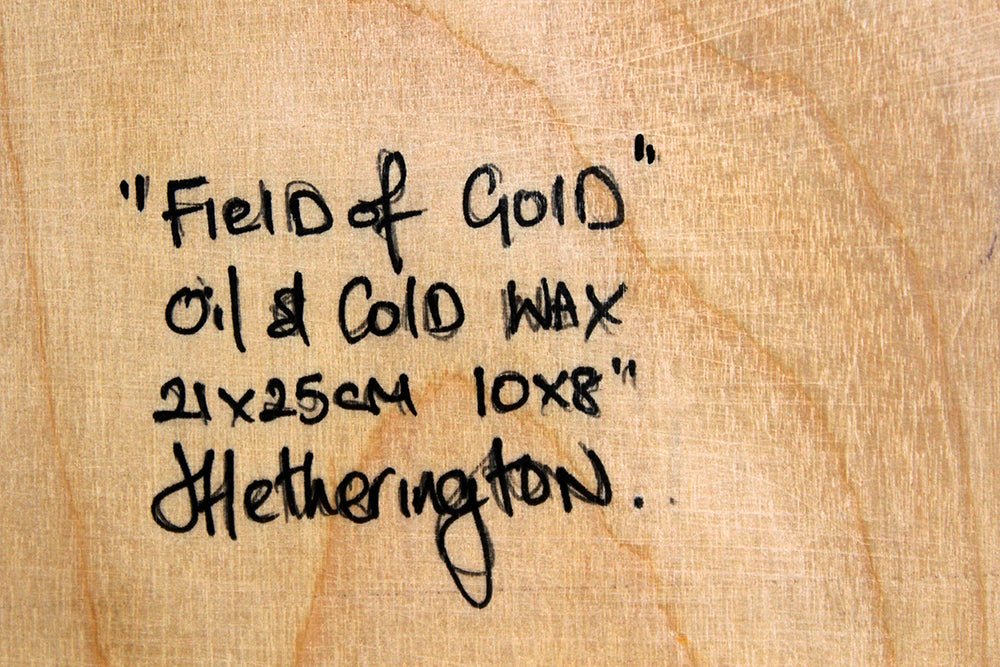 "Field of Gold"
Oil & Cold WAX
21x25cm 10x8"
JHetherington.